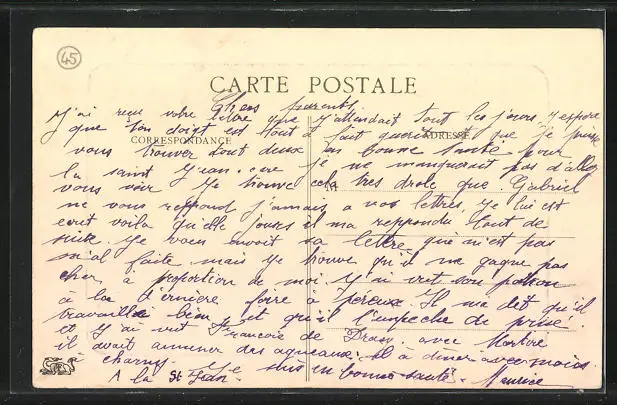 45
CARTE POSTALE
Chers parents
J'ai reçu votre lettre que j'attendait tout les jours, j'espere
que ton doigt est tout à fait querit et que je puisse
CORRESPONDANCE
ADRESSE
vous trouver tout deux en bonne santé pour
la saint Jean, car je ne manquerait pas d'aller
vous voir Je trouve cela tres drole que Gabriel
ne vous repond jamais a vos lettres, je lui est
ecrit voila quelle jours il ma reppondu tout de
suite. Je vous envoit sa lettre qui n'est pas
mal faite mais je trouve qu'il ne gagne pas
cher, à proportion de moi. J'ai vut son patron
a la derniere foire à Il ma dit qu'il
travaillai bien et qu'il l'enpeche de prise.
et J'ai vut Francois de avec
il avait ammener des agneaux. Il a diner avec moi
à charny. Je suis en bonne santé. Maurice
A la St Jean.